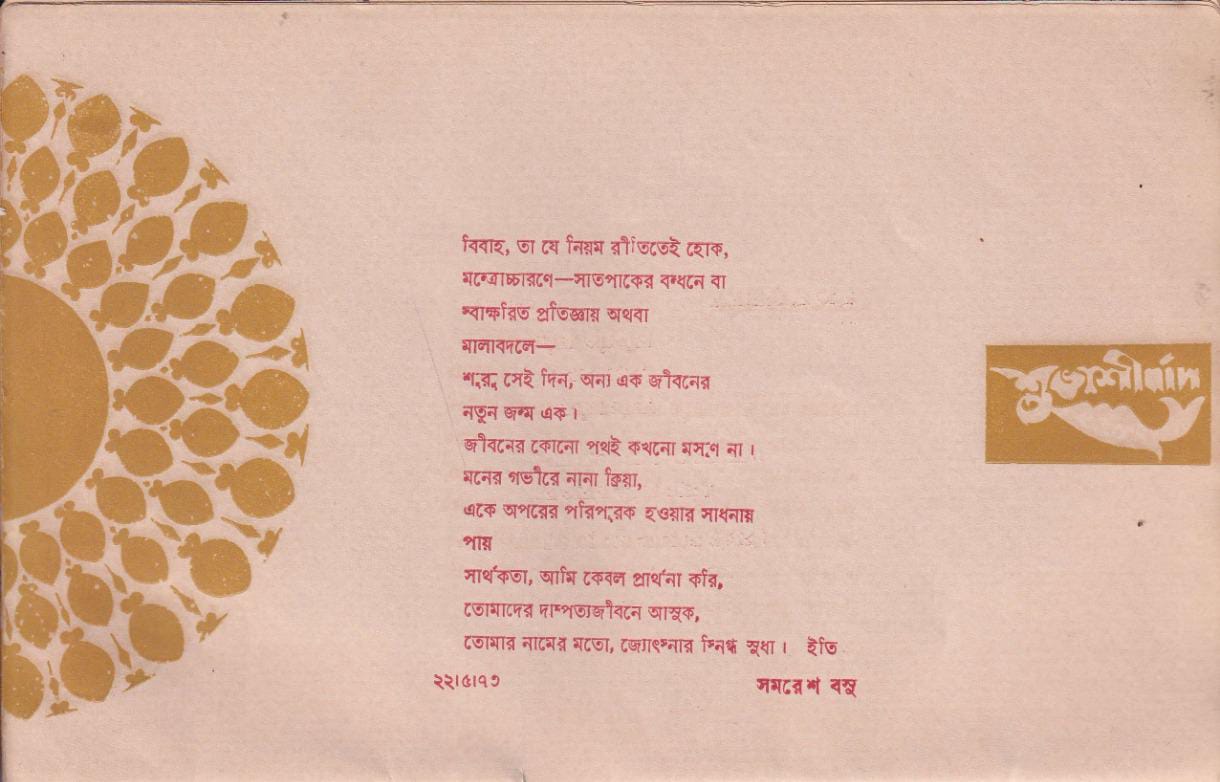 বিবাহ, তা যে নিয়ম রীতিতেই হোক,
মন্ত্রোচ্চারণে—সাতপাকের বন্ধনে বা
স্বাক্ষরিত প্রতিজ্ঞায় অথবা
মালাবদলে—
শুরু সেই দিন, অন্য এক জীবনের
নতুন জন্ম এক।
জীবনের কোনো পথই কখনো মসৃণ না।
মনের গভীরে নানা ক্রিয়া,
একে অপরের পরিপূরক হওয়ার সাধনায়
পায়
সার্থকতা, আমি কেবল প্রার্থনা করি,
তোমাদের দাম্পত্যজীবনে আসুক,
তোমার নামের মতো, জ্যোৎস্নার স্নিগ্ধ সুধা। ইতি
২২।৫।৭৩ সমরেশ বসু
শুভাশীর্বাদ